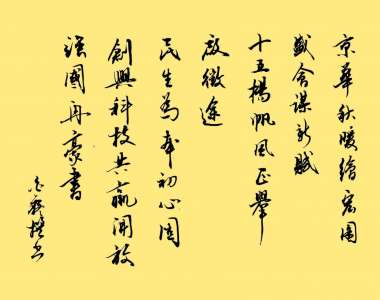 京華秋暖繪宏圖
盛會謀新賦
十五揚帆風正舉
啟徵途
民生為本初心固
創興科技共贏開放
強國再豪書